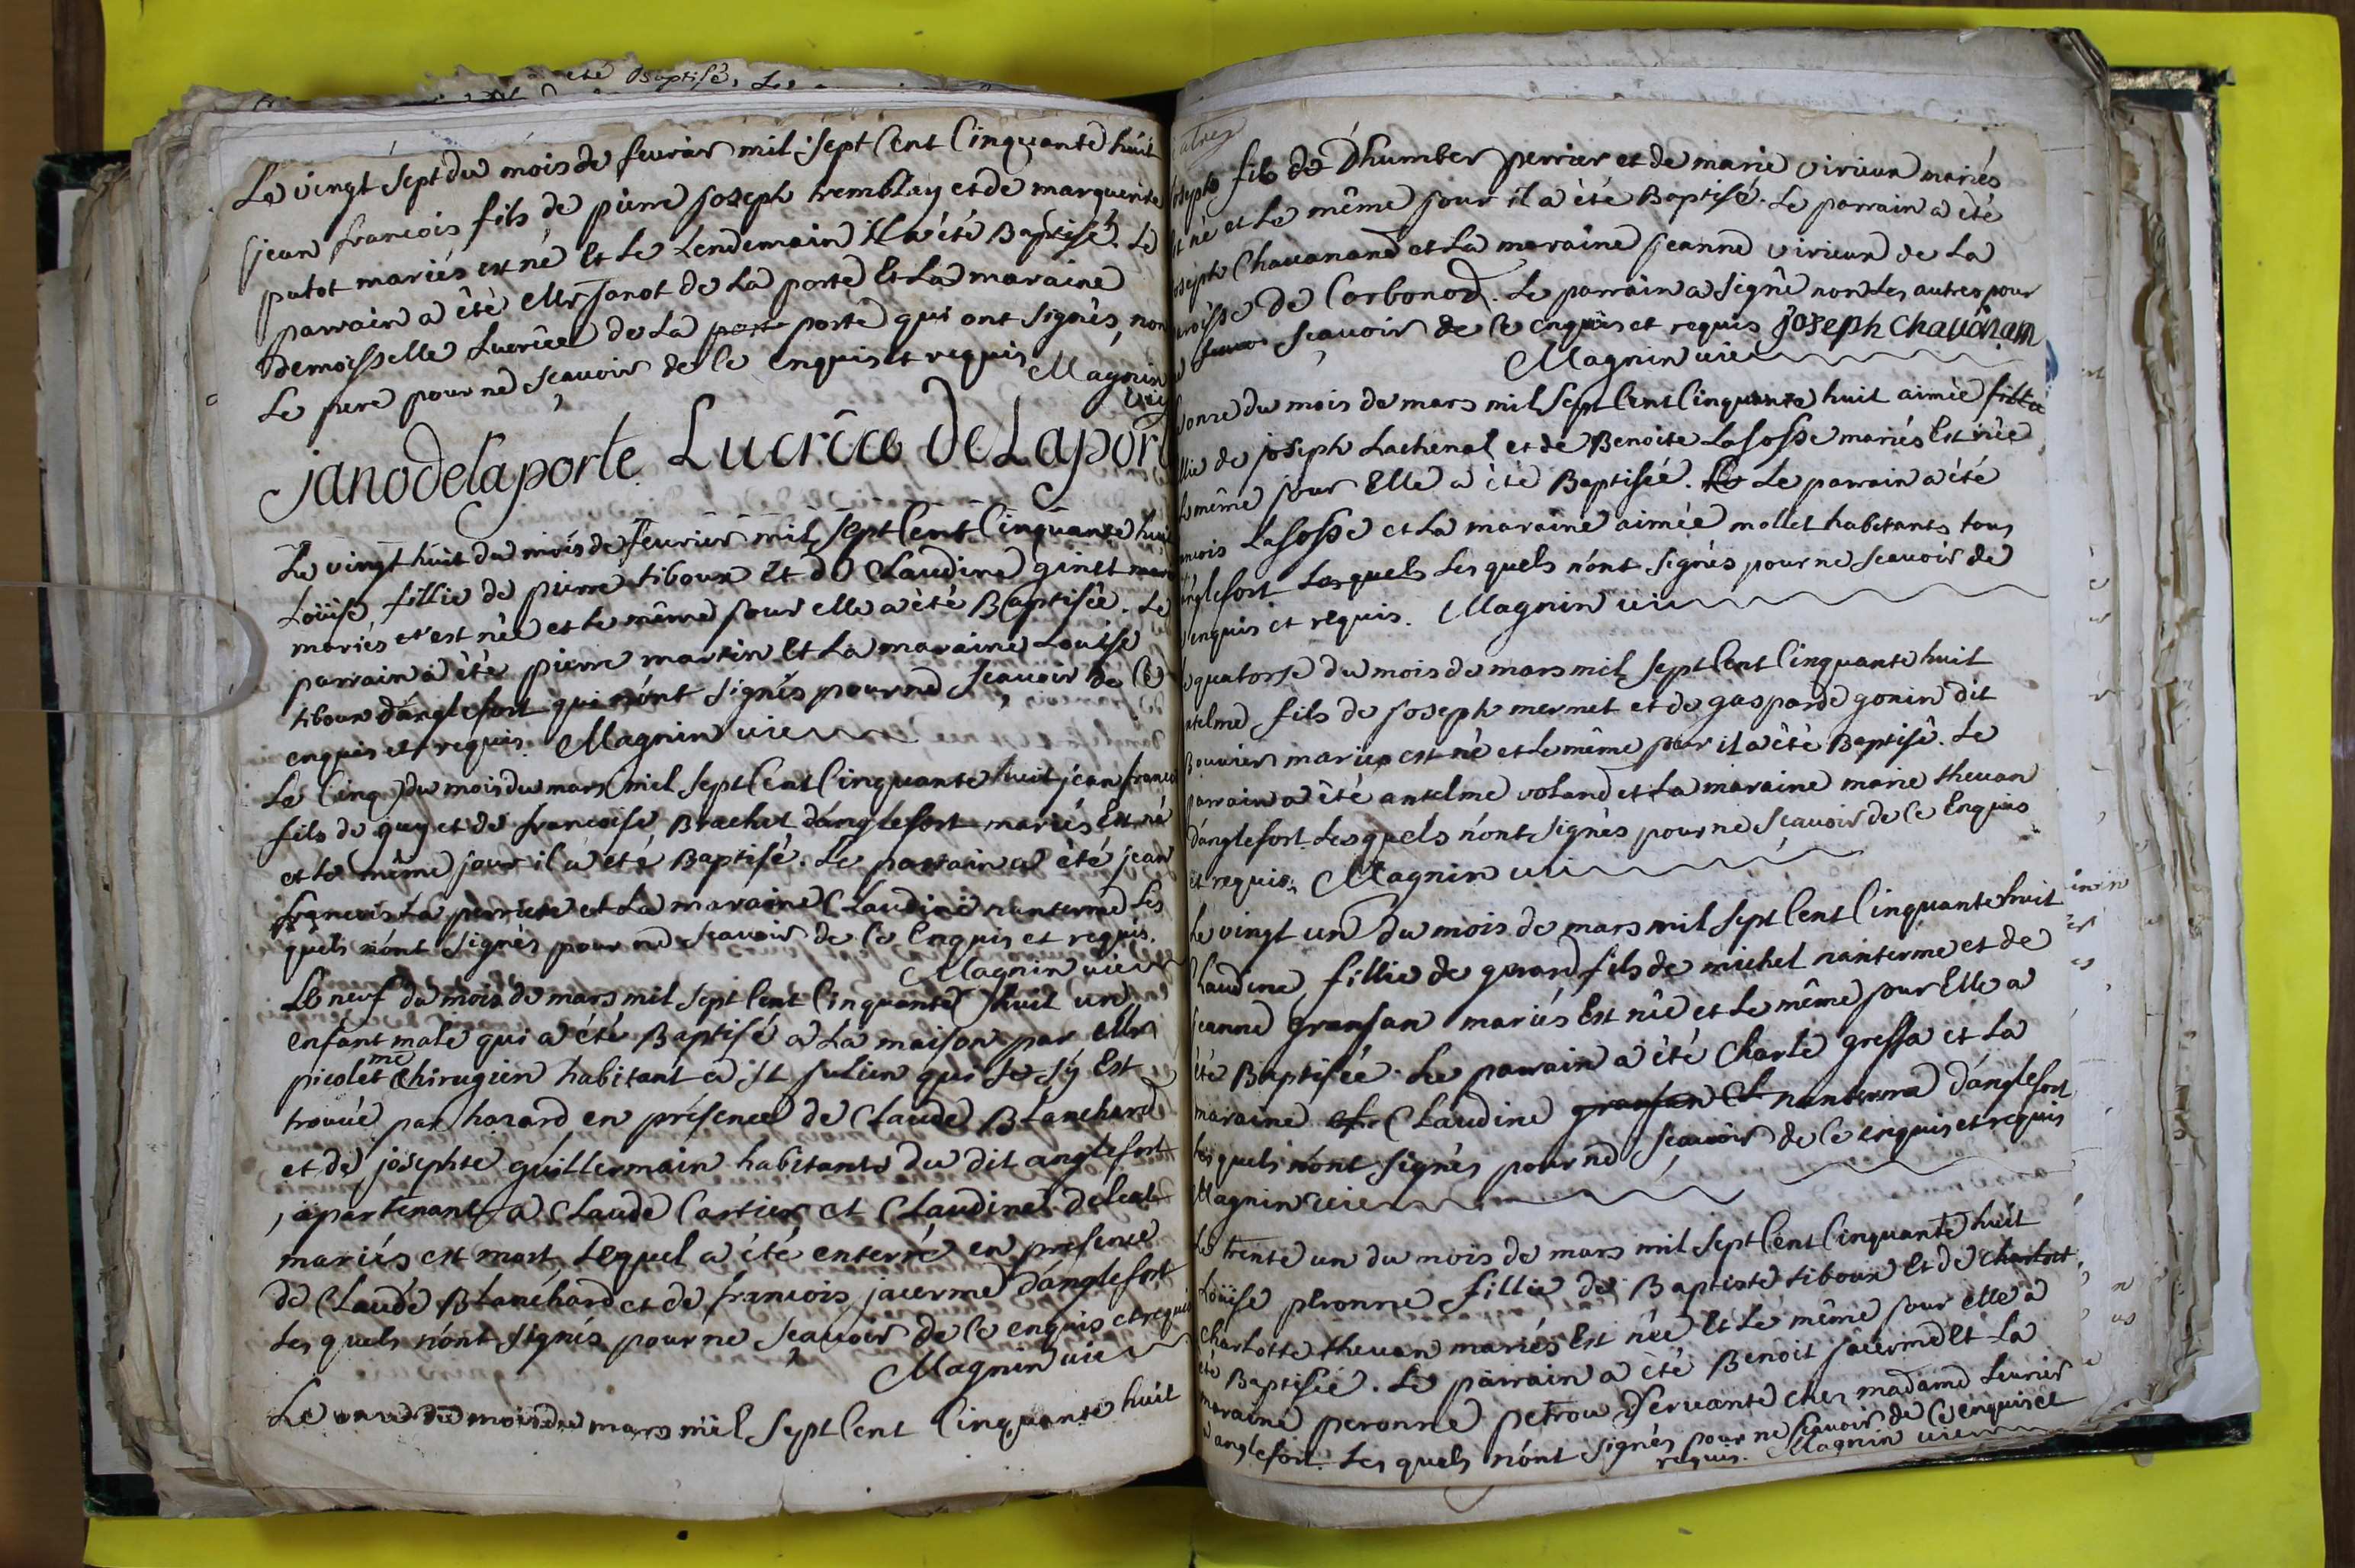 été Baptisé, Le
Le vingt sept du mois de feurier mil sept Cent Cinquante huit
jean francois fils de pierre joseph tremblay et de marguerite
putot mariés est né Et le Lendemain il a été Baptisé. Le
parrain a été Mr janot de La porte Et La maraine
Demoisselle Lucrîce de La porte porte qui ont signés, non
Le pere pour ne sçauoir de ce enquis et requis Magnin
vic
jano de la porte Lucrîce de Laport
Le vingt huit du mois de feurier mil sept Cent Cinquante huit
Loüise fillie de pierre tiboux Et de Claudine ginet
mariés et est née et le même jour elle a été Baptisée. Le
parrain a été pierre martin Et La maraine Louise
tiboux d'anglefort qui n'ont signés pour ne sçauoir de ce
enquis et requis. Magnin vic
Le Cinq du mois du mars mil sept Cent Cinquante huit jean francois
fils de guy et de francoise Brachet d'anglefort mariés Est né
et le même jour il a eté Baptisé. Le parrain a été jean
francois La perriere et La maraine Claudine nanterme Les
quels n'ont signés pour ne sçauoir de ce Enquis et requis.
Magnin vic
Le neuf du mois de mars mil sept Cent Cinquante huit un
Enfant male qui a été Baptisé a La maison par Mr
me
picolet Chirugien habitant a st julien qui se sÿ Est
trouée par hazard en présence de Claude Blanchard
et de josephte guillermain habitants du dit anglefort
, apartenant a Claude Cartier et Claudine
mariés est mort Lequel a été enterré en présence
de Claude Blanchard et de francois jacerme d'anglefort
Les quels n'ont signés pour ne sçauoir de ce enquis et requis
Magnin vic
Le onze du mois du mars mil sept Cent Cinquante huit
joseph fils de D'humber perrier et de marie virieux mariés
Est né et Le même jour il a été Baptisé. Le parrain a été
joseph Chauanand et La maraine jeanne virieux de La
paroisse de Corbonod. Le parrain a signé non Les autres pour
sçauoir de ce enquis et requis joseph chauanam
Magnin vic
onze du mois de mars mil sept Cent Cinquante huit aimée
fillie de joseph Lachenal et de Benoite Lafosse mariés Est née
Le même jour Elle a été Baptisée. Le parrain a été
Lafosse et La maraine aimée mollet habitants tous
anglefort Lesquels Les quels n'ont signés pour ne sçauoir de
enquis et requis. Magnin vic
quatorse du mois de mars mil sept Cent Cinquante huit
antelme fils de joseph mermet et de gasparde gonin dit
Bouuier mariés est né et le même jour il a été Baptisê. Le
parrain a été antelme voland et La maraine marie theuan
d'anglefort Lesquels n'ont signés pour ne sçauoir de ce Enquis
et requis. Magnin vic
Le vingt un du mois de mars mil sept Cent Cinquante huit
Claudine fillie de gerard fils de michel nanterme et de
jeanne gransan mariés Est née et Le même jour Elle a
été Baptisée. Le parrain a été Charle gressa et La
maraine Claudine gransan nanterme d'anglefort
Les quels n'ont signés pour ne sçauoir de ce enquis et requis
Magnin vic
Le trente un du mois de mars mil sept Cent Cinquante huit
Loüise peronne fillie de Baptiste tiboux Et de
Charlotte theuan mariés Est née Et Le même jour elle a
été Baptisée. Le parrain a été Benoit jacerme Et La
maraine peronne petrou seruante chez madame Leurier
d'anglefort. Les quels n'ont signés pour ne sçauoir de ce enquis et
requis. Magnin vic